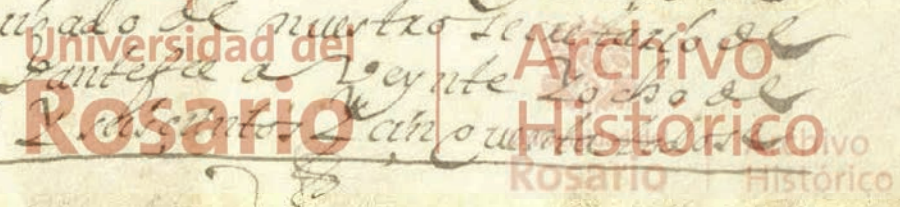 de nuestro secretario de
Santafee a Veynte Y ocho de
Y seiscientos Y cinquenta Y dos
Universidad del
Rosario
Archivo
Histórico
Rosario
Archivo
Histórico